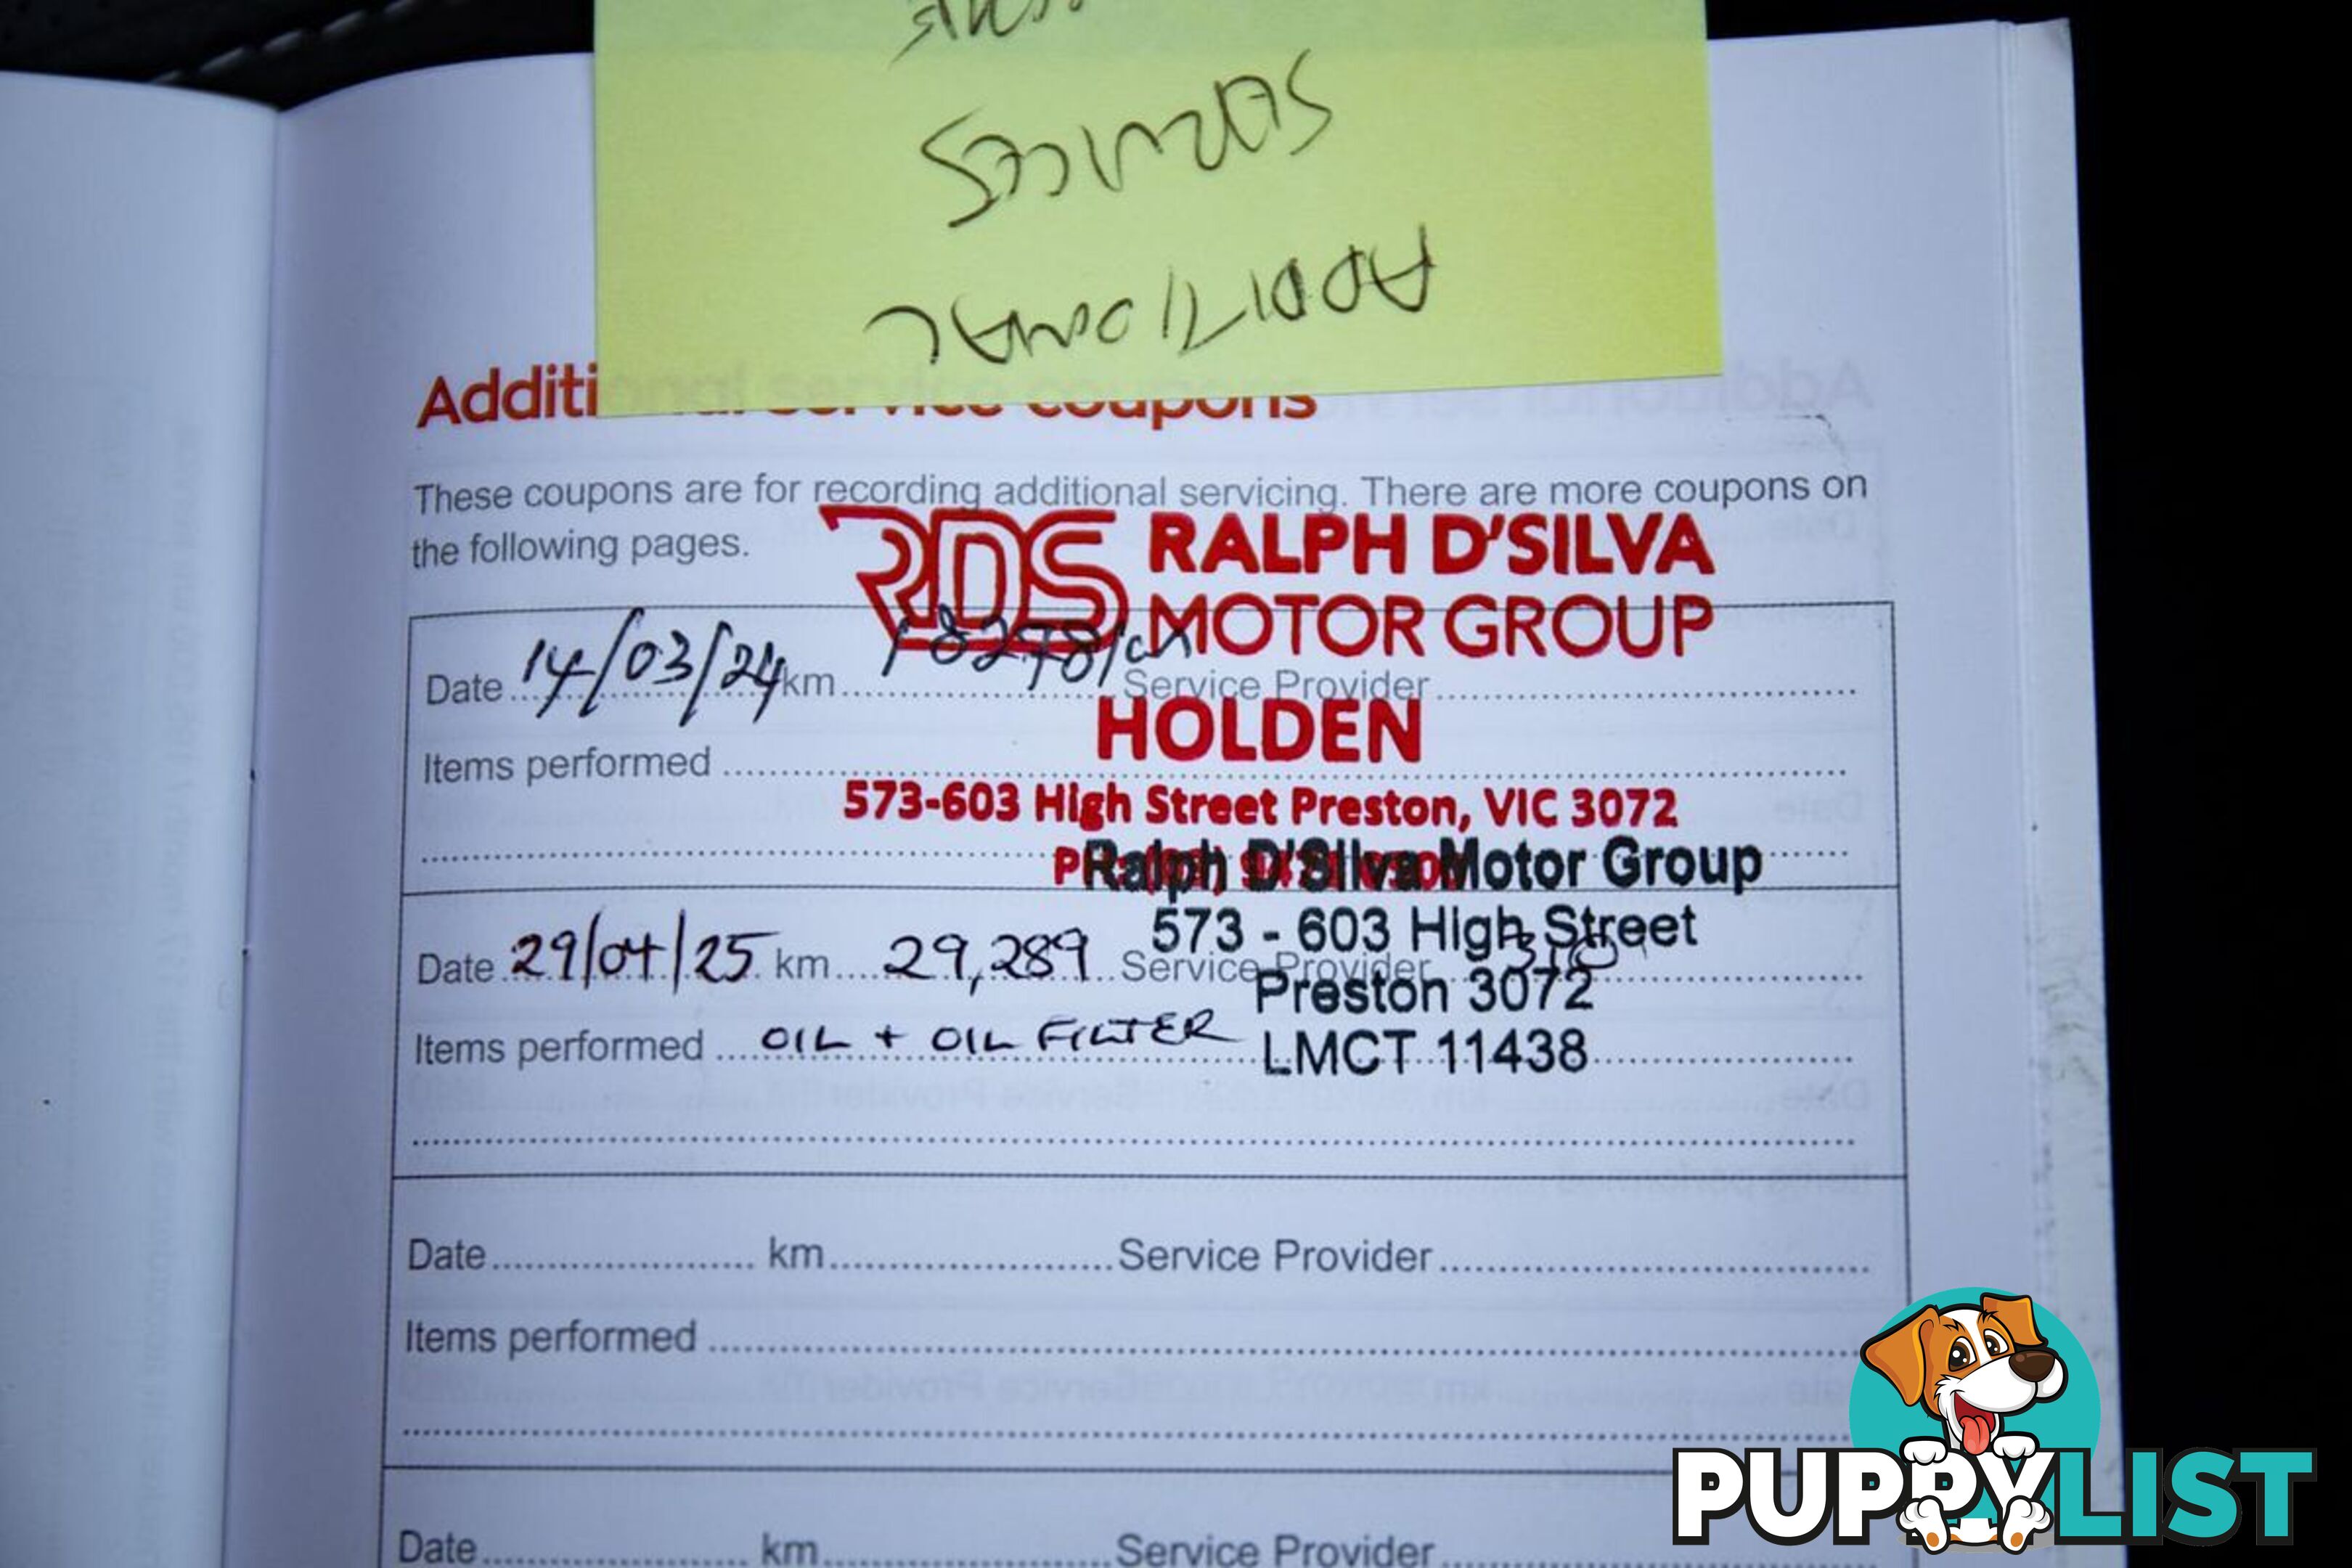 SERVICES
ADDITIONAL
Additional service coupons
These coupons are for recording additional servicing. There are more coupons on
the following pages.
RDS RALPH D'SILVA
MOTOR GROUP
Date 14/03/24 km 18278km Service Provider
HOLDEN
Items performed
573-603 High Street Preston, VIC 3072
Ralph D'Silva Motor Group
573 - 603 High Street
Date 29/04/25 km 29,289 Service Provider
Preston 3072
Items performed OIL + OIL FILTER
LMCT 11438
Date km Service Provider
Items performed
Date km Service Provider
PUPPYLIST